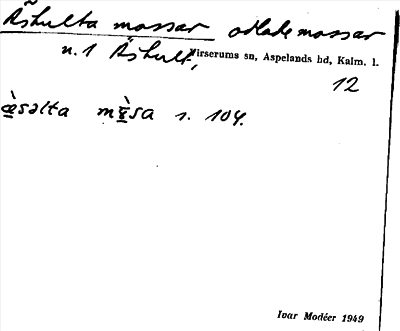 Åshulta mossar odlade mossar
n. 1 Åshult, Virserums sn, Aspelands hd, Kalm. l.
12
s. 104.
Ivar Modéer 1949